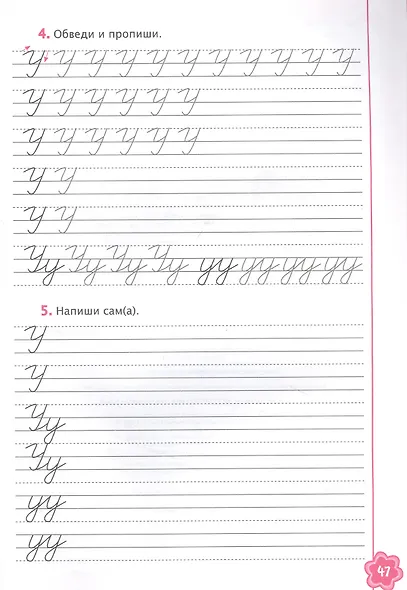 4. Обведи и пропиши.
У У У У У У У У У У У
У У У У У У
У У У У У У
У У
У У
Уу Уу Уу Уу уу уу уу уу
5. Напиши сам(а).
У
У
Уу
Уу
уу
уу
47